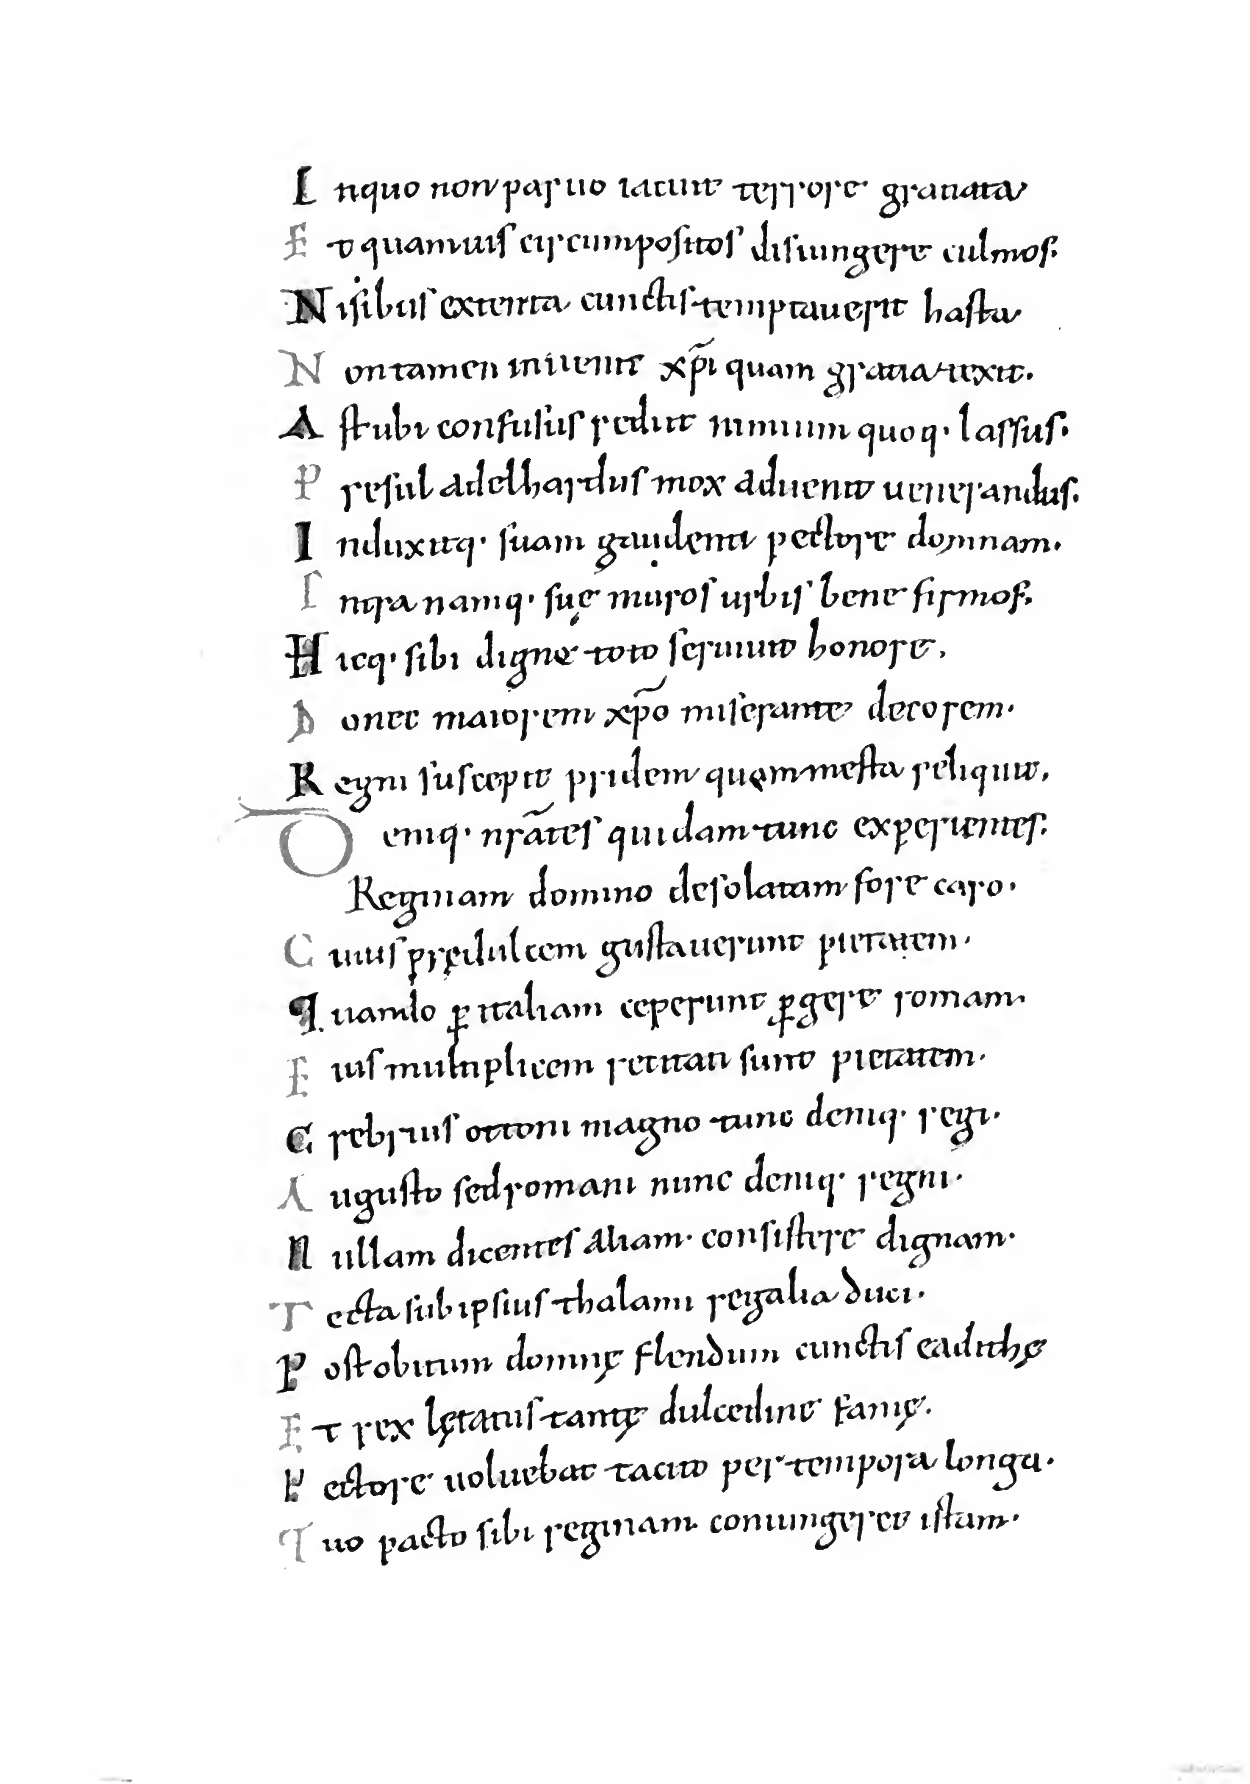 In quo non paruo iacuit terrore grauata
Et quamuis circumpositos disiungere culmos.
Nisibus extenta cunctis temptauerit hasta
Non tamen inuenit xp̃i quam gratia texit.
Ast ubi confusus rediit nimium quoq· lassus.
Presul adelhardus mox aduenit uenerandus.
Induxitq· suam gaudenti pectore domnam.
Intra namq· suę muros urbis bene firmos.
Hicq· sibi digne toto seruiuit honore.
Donec maiorem xp̃o miserante decorem.
Regni suscepit pridem quam mesta reliquit.
Deniq· nr̃ates quidam tunc experientes.
Reginam domino desolatam fore caro.
Cuius prędulcem gustauerunt pietatem.
Quando ꝑ italiam ceperunt ꝑgere romam.
Eius multiplicem recitati sunt pietatem.
Crebrius ottoni magno tunc deniq· regi.
Augusto sed romani nunc deniq· regni.
Nullam dicentes aliam· consistere dignam.
Tecta sub ipsius thalami regalia duci.
Post obitum domnę flendum cunctis eadithę
Et rex lętatus tantę dulcedine famę.
Pectore uoluebat tacito per tempora longa.
Quo pacto sibi reginam coniungeret istam.